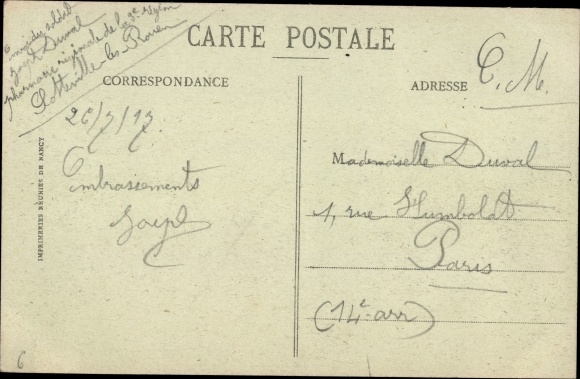 Envoi du soldat
Duval
pharmacie régionale de la 3e région
Sotteville-les-Rouen
CARTE POSTALE
CORRESPONDANCE
26/7/17
Embrassements
IMPRIMERIES RÉUNIES DE NANCY
ADRESSE
C. M.
Mademoiselle Duval
1, rue Humboldt
Paris
(14e arr)
6